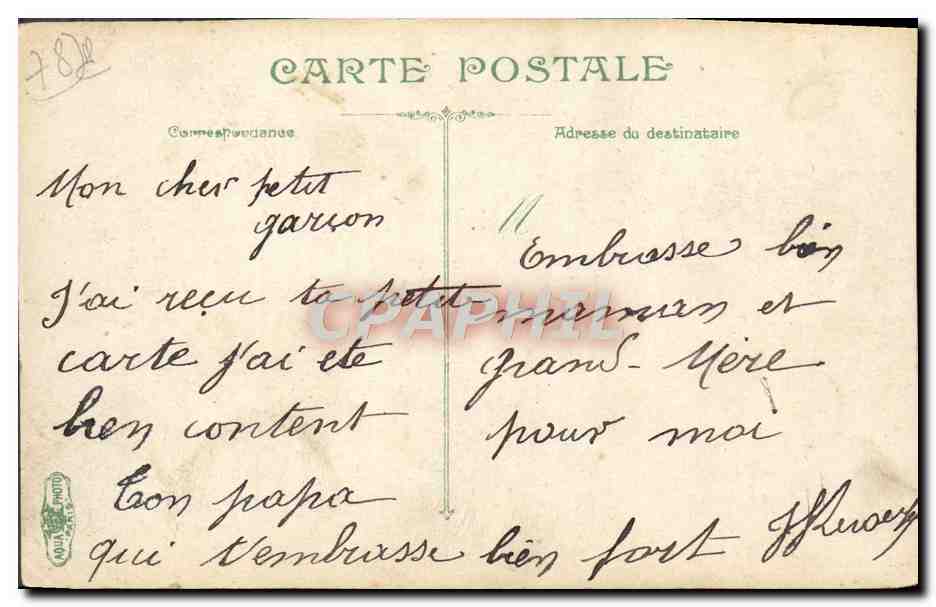 78
CARTE POSTALE
Correspondance
Adresse du destinataire
Mon cher petit
garçon
J'ai reçu ta petite
carte j'ai ete
bien content
Ton papa
qui t'embrasse bien fort
Embrasse bien
maman et
grand-Mère
pour moi
CPAPHIL
AQUA PHOTO
PARIS